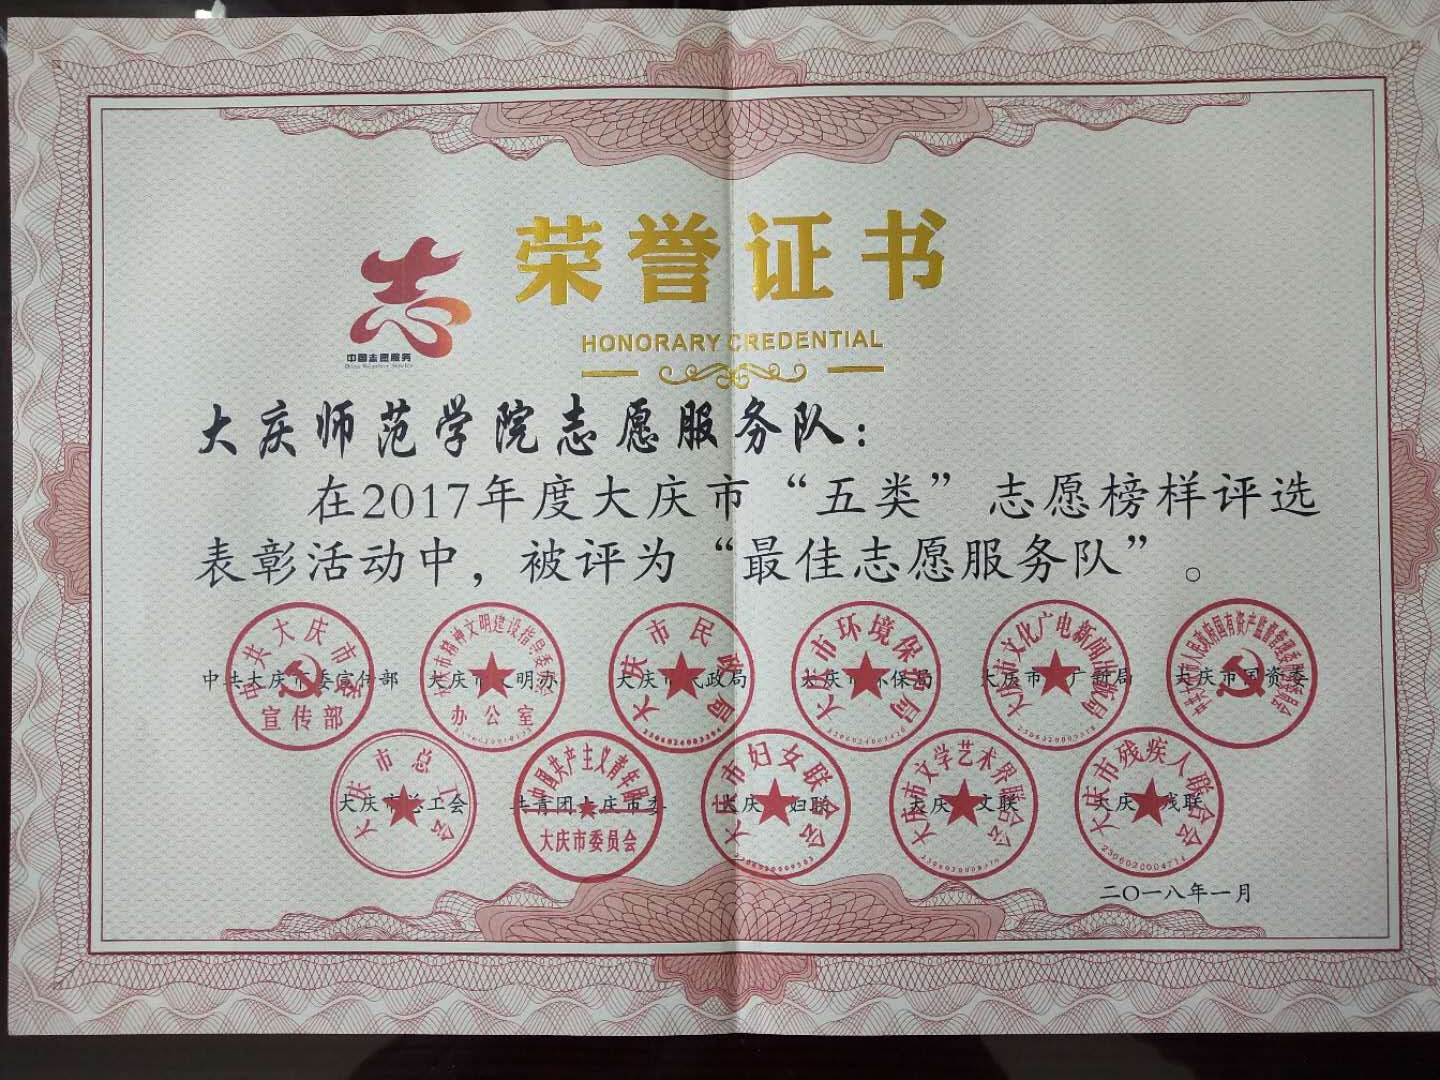 荣誉证书
HONORARY CREDENTIAL
中国志愿服务
China Voluntary Service
大庆师范学院志愿服务队：
在2017年度大庆市“五类”志愿榜样评选
表彰活动中，被评为“最佳志愿服务队”。
中共大庆市委宣传部 大庆市文明办 大庆市民政局 大庆市环保局 大庆市文广新局 大庆市国资委
中共大庆市委
宣传部
大庆市精神文明建设指导委员会
办公室
大庆市民政局
大庆市环境保护局
大庆市文化广电新闻出版局
大庆市总工会 共青团大庆市委 大庆市妇联 大庆市文联 大庆市残联
大庆市总工会
中国共产主义青年团
大庆市委员会
大庆市妇女联合会
大庆市文学艺术界联合会
大庆市残疾人联合会
2306020004714
二〇一八年一月